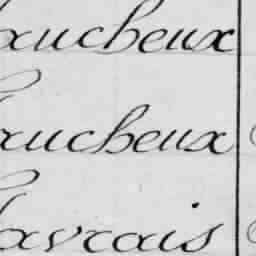 aucheux
aucheux
avrais